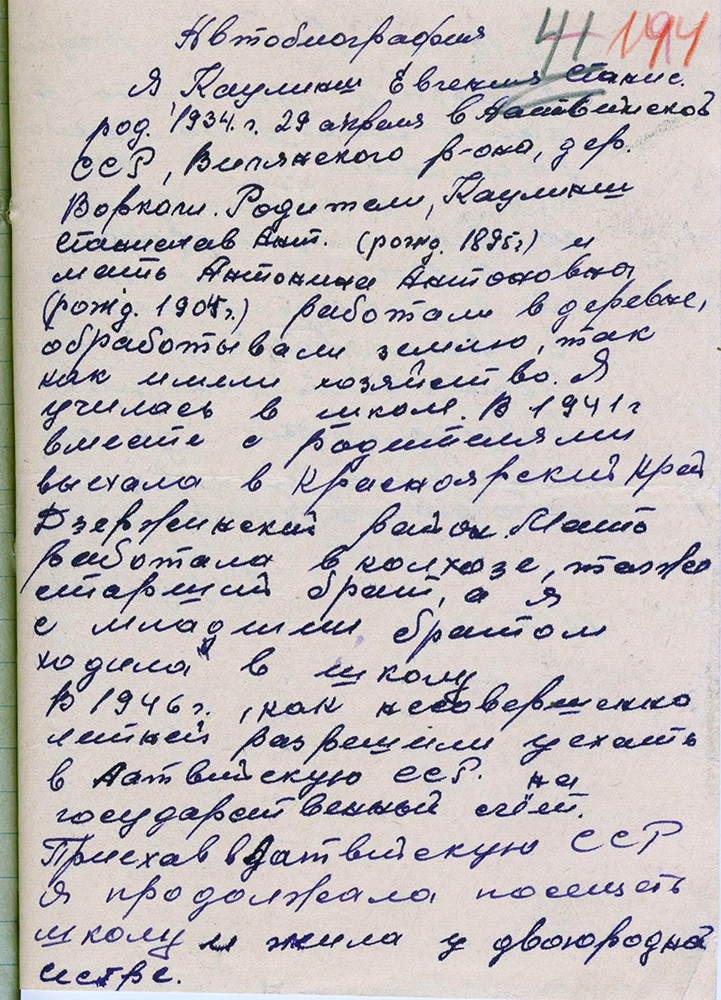 Автобиография
41 194
Я Каулинш Евгения Станис.
род. 1934.г. 29 апреля в Латвийской
ССР, Вилянского р-она, дер.
Воркали. Родители, Каулинш
Станислав Ант. (рожд. 1895г) и
мать Антонина Антоновна
(рожд. 1905г.) работали в деревне,
обработывали землю, так
как имели хозяйство. Я
училась в школе. В 1941г
вместе с родителями
выехала в Красноярский Край
Дзержинский район. Мать
работала в колхозе, также
старший брат, а я
с младшим братом
ходила в школу
В 1946г., как несовершенно
летней разрешили уехать
в Латвийскую ССР. на
государственный счёт.
Приехав в Латвийскую ССР
я продолжала посещать
школу и жила у двоюродной
сестре.